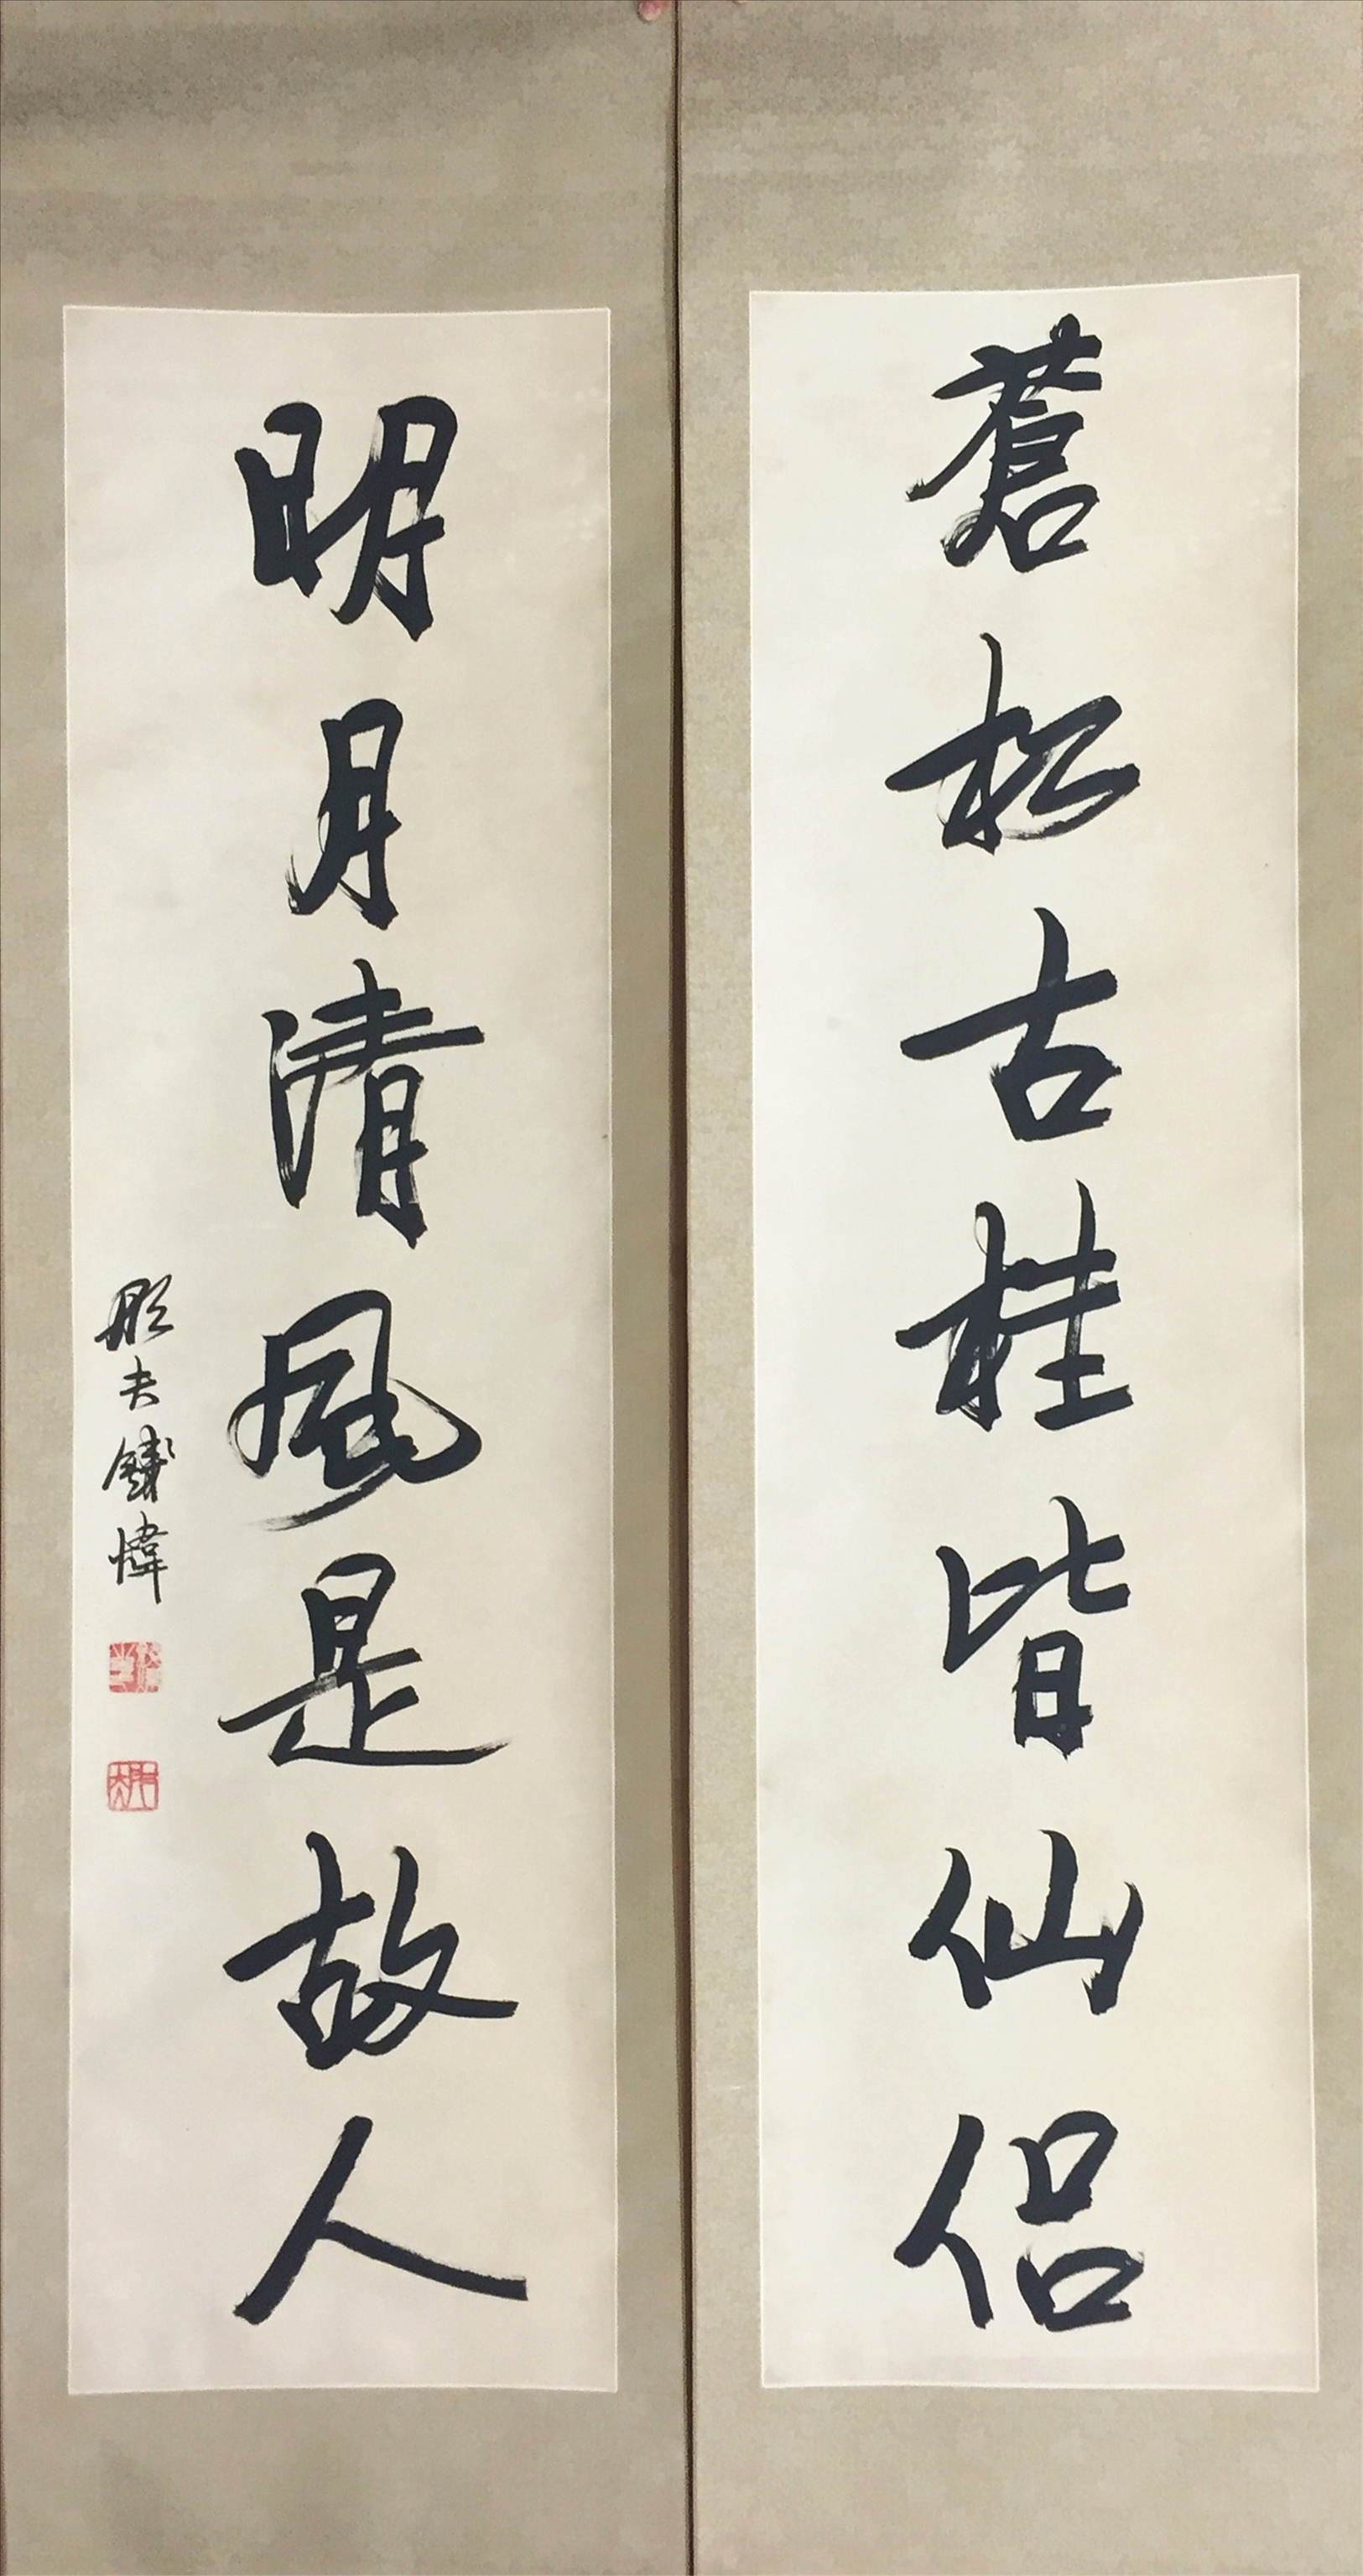 蒼松古桂皆仙侶
明月清風是故人
夫